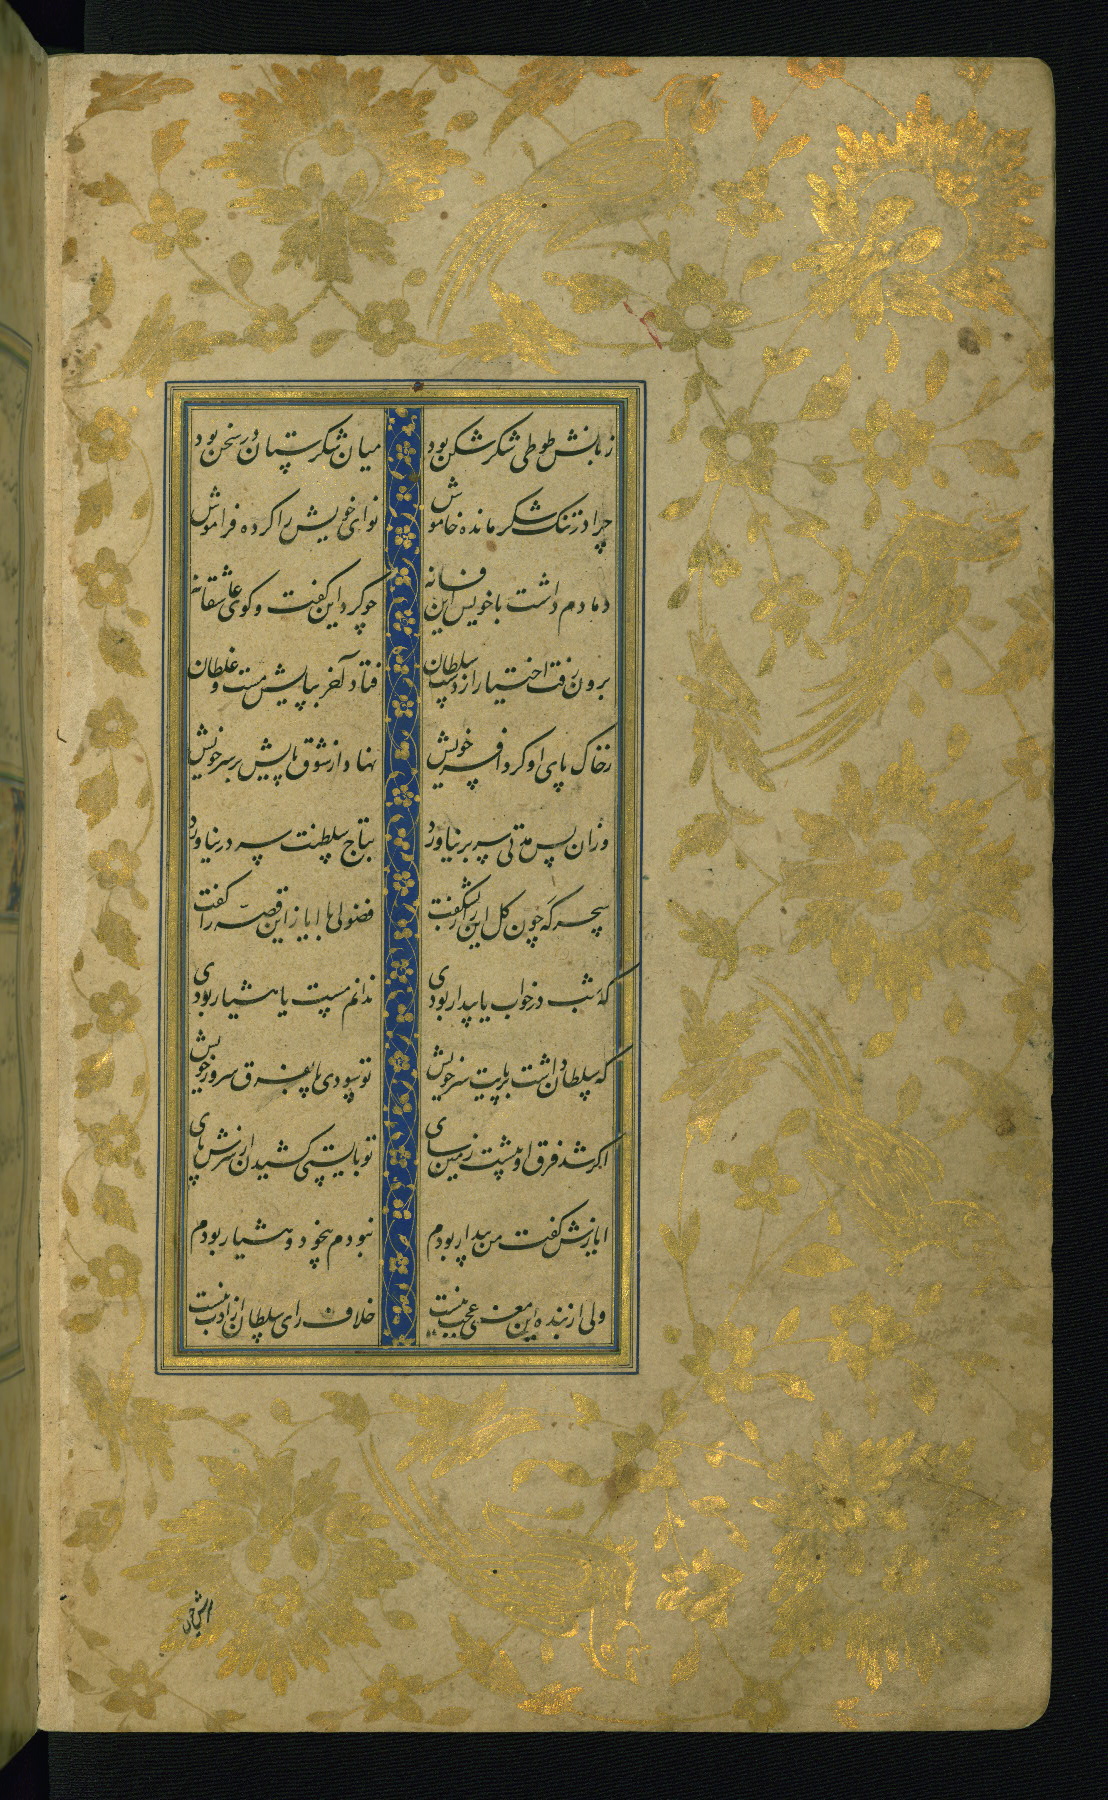 زبانش طوطی شکرشکن بود میان شکرستان در سخن بود
چرا در تنک شکر مانده خاموش نوای خویش را کرده فراموش
دمادم داشت با خویش این فسانه چو کرد این گفت و کوی عاشقانه
برون رفت اختیار از دست سلطان فتاد آخر بپایش مست و غلطان
ز خاک پای او کرد افسر خویش نهاد از شوق پایش بر سر خویش
وزان پس مدتی سر بر نیاورد بتاج سلطنت سر در نیاورد
سحر که چون کل این راز بشکفت فضولی با ایاز این قصه را گفت
که شب در خواب یا بیدار بودی ندانم مست یا هشیار بودی
که سلطان داشت بر پایت سر خویش تو سودی پا بفرق سرور خویش
اگر شد فرق او پیشت زمین سای تو بایستی کشیدن از سرش پای
ایازش گفت من بیدار بودم نبودم بیخود و هشیار بودم
ولی از بنده این معنی عجب نیست خلاف رای سلطان از ادب نیست